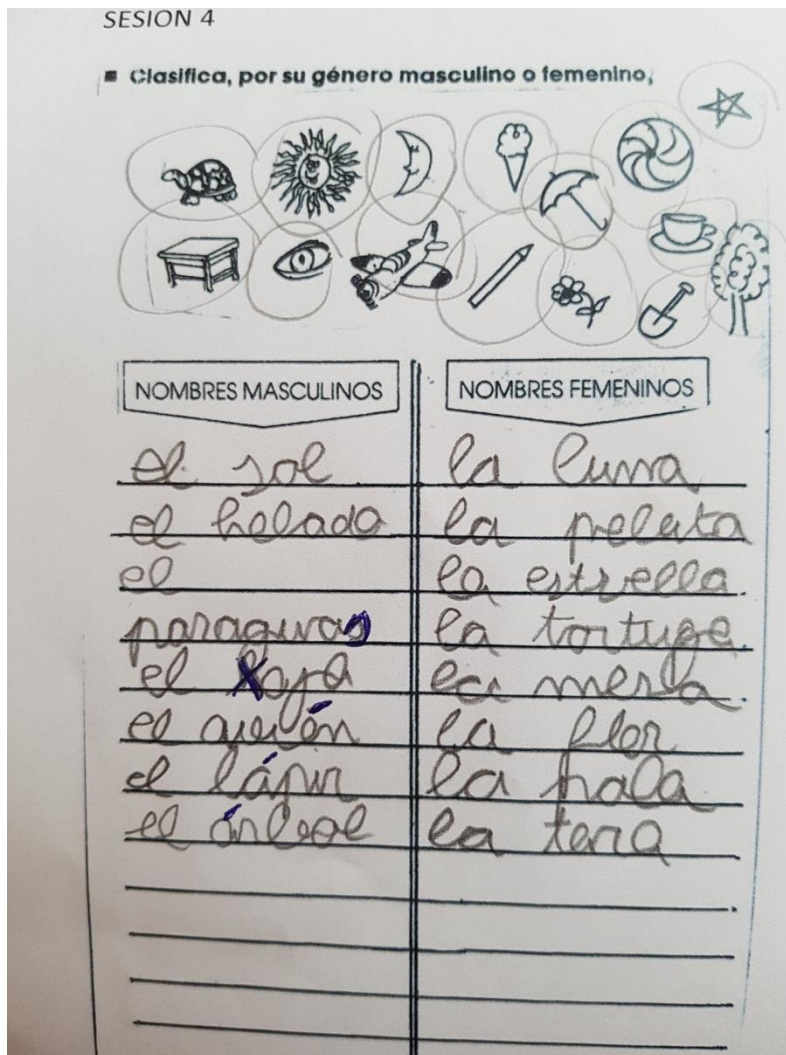 SESION 4
Clasifica, por su género masculino o femenino,
NOMBRES MASCULINOS
NOMBRES FEMENINOS
el sol
la luna
el helado
la pelota
el
la estrella.
paraguas
la tortuga.
el
la mesa.
el avión
la flor
el lápiz
la pala
el árbol
la taza